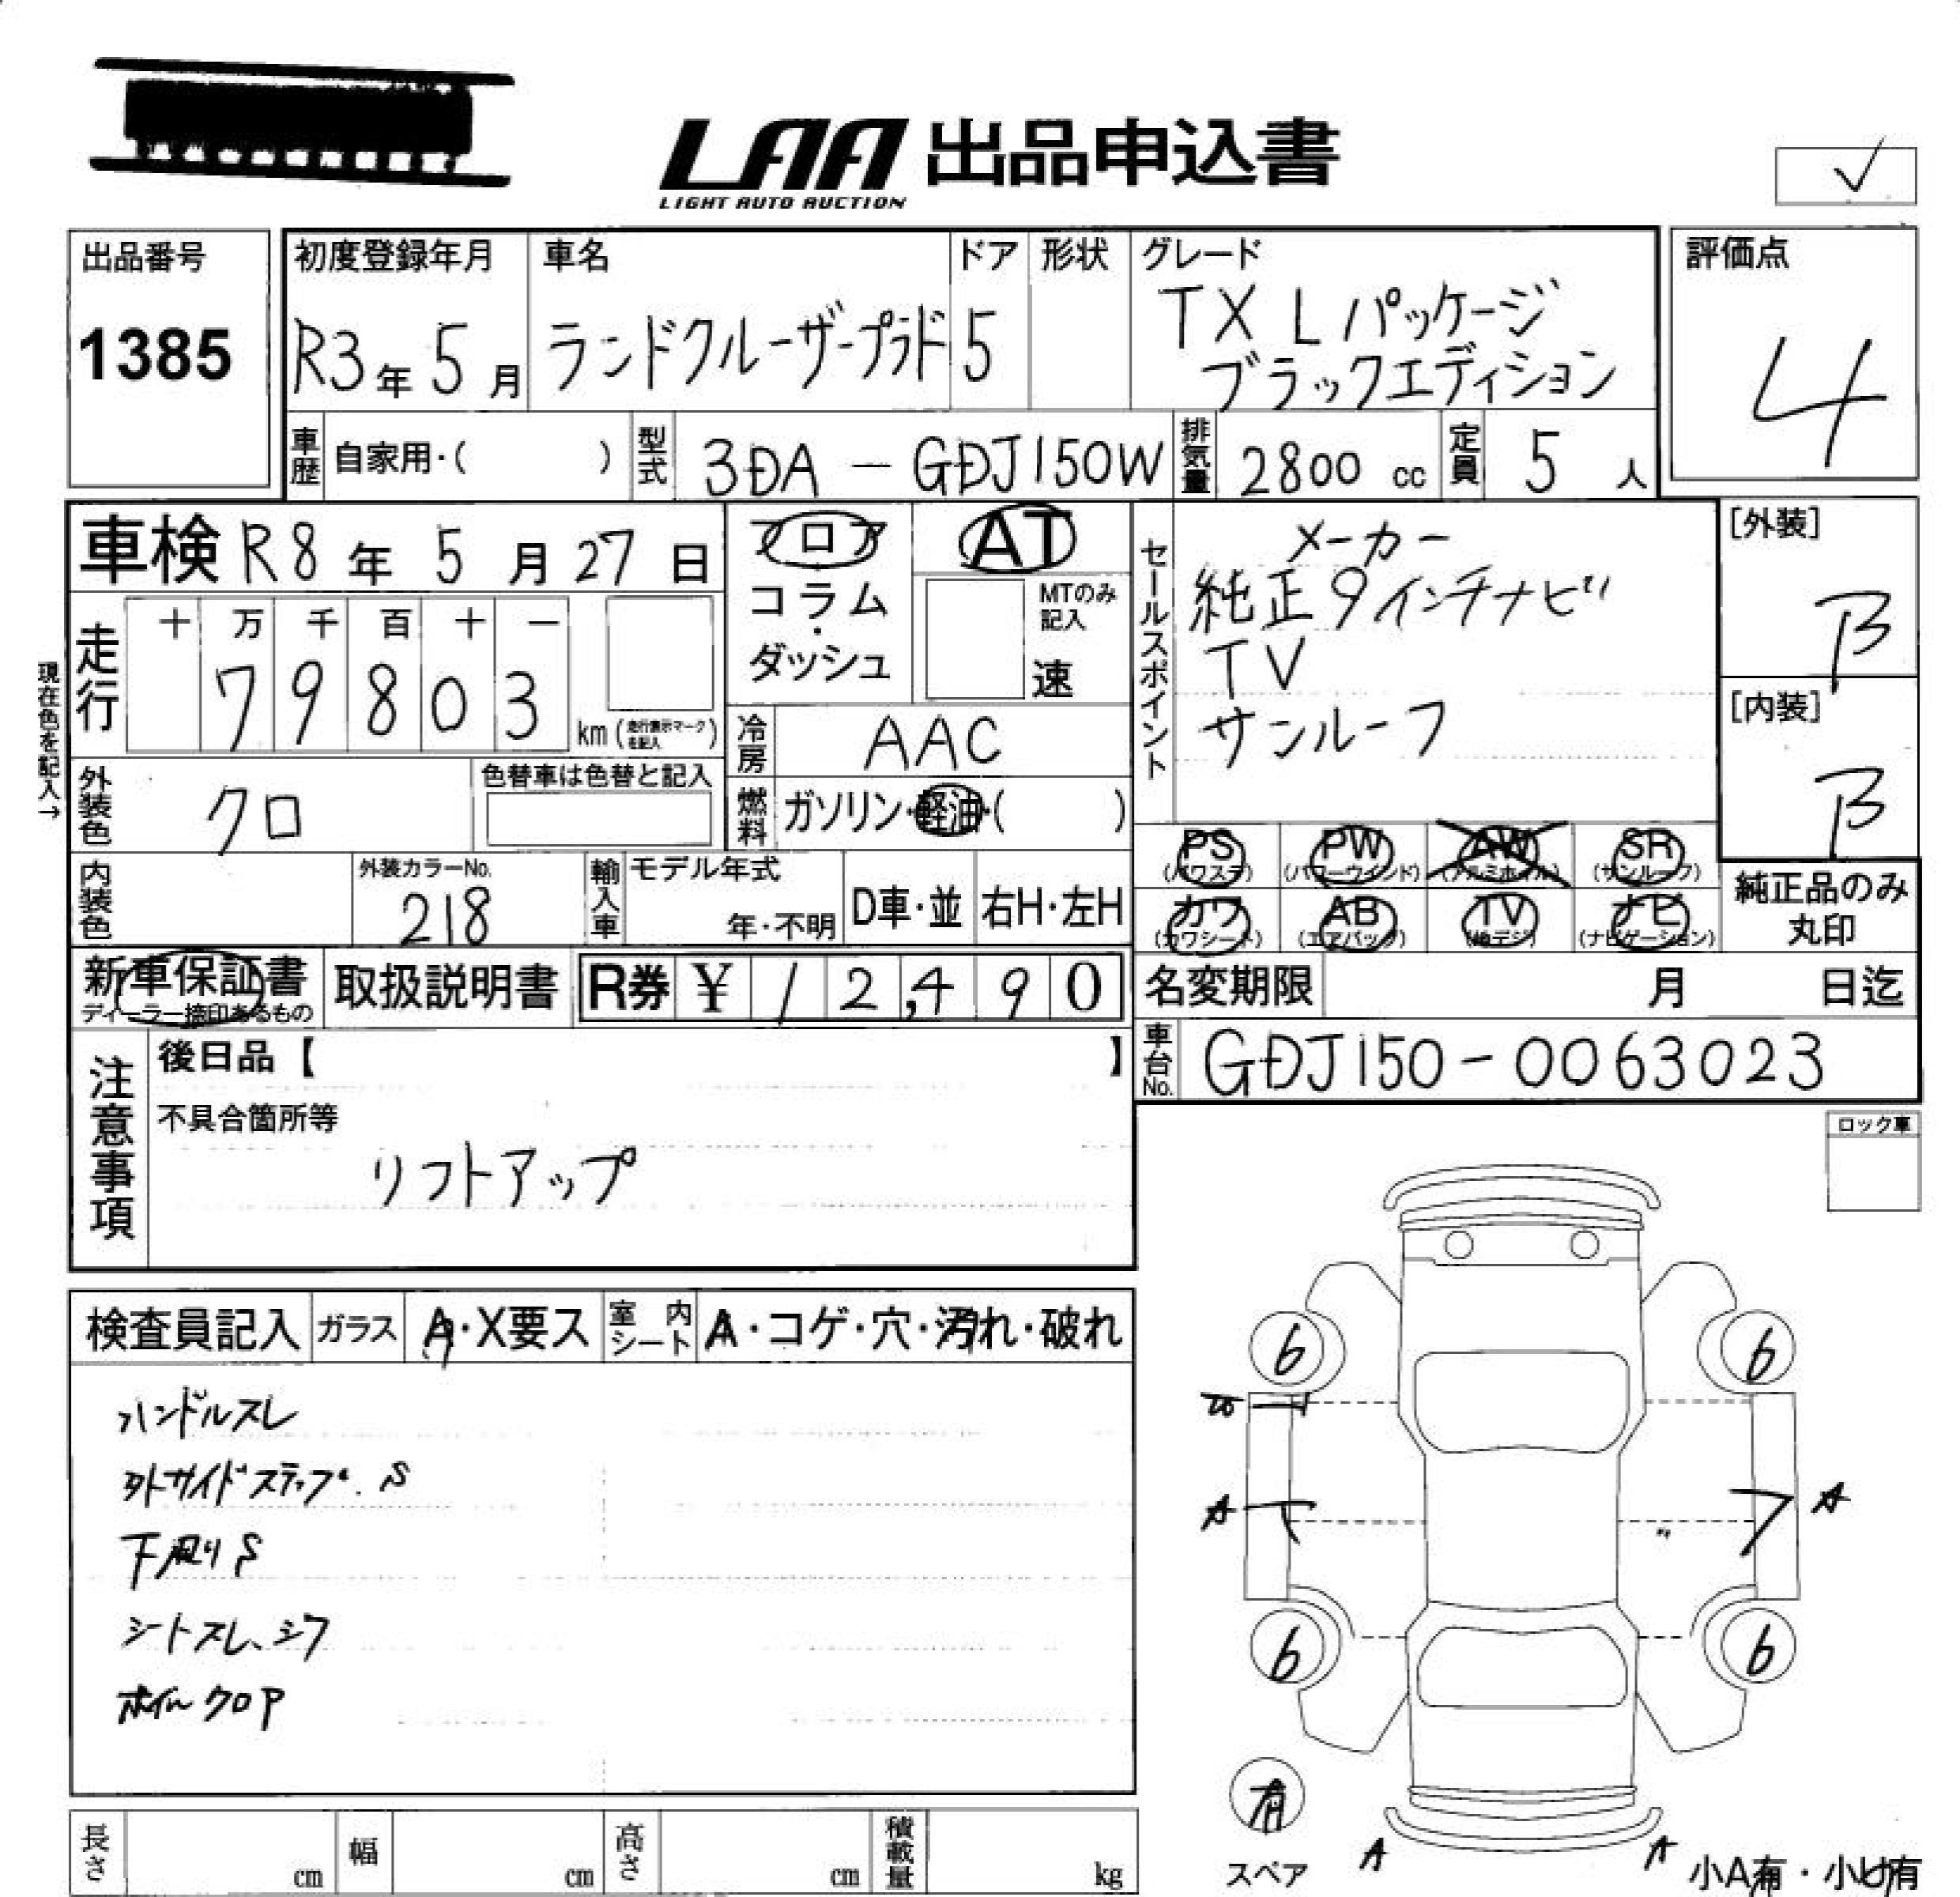 LAA 出品申込書
LIGHT AUTO AUCTION
出品番号
1385
初度登録年月
R3年5月
車名
ランドクルーザープラド
ドア
5
形状
グレード
TX Lパッケージ
ブラックエディション
評価点
4
車歴
自家用・( )
型式
3DA - GDJ150W
排気量
2800 cc
定員
5 人
車検 R8年 5月 27日
フロア
コラム
・
ダッシュ
AT
MTのみ
記入
速
セールスポイント
メーカー
純正9インチナビ
TV
サンルーフ
[外装]
B
[内装]
B
現在色を記入→
走行
十 万 千 百 十 一
7 9 8 0 3
km (走行表示マークを記入)
冷房
AAC
外装色
クロ
色替車は色替と記入
燃料
ガソリン・軽油・( )
PS
(パワステ)
PW
(パワーウインド)
AW
(アルミホイル)
SR
(サンルーフ)
カワ
(カワシート)
AB
(エアバッグ)
TV
(地デジ)
ナビ
(ナビゲーション)
純正品のみ
丸印
内装色
外装カラーNo.
218
輸入車
モデル年式
年・不明
D車・並
右H・左H
新車保証書
ディーラー捺印あるもの
取扱説明書
R券 ¥ 12,490
名変期限
月 日迄
車台No.
GDJ150-0063023
注意事項
後日品【 】
不具合箇所等
リフトアップ
ロック車
検査員記入
ガラス
A・X要ス
室内シート
A・コゲ・穴・汚れ・破れ
ハンドルスレ
外サイドステップ.S
下周りS
シートスレ、シワ
ホイールクロP
6
6
A
A
6
6
有
スペア
A
A
小A有・小U有
長さ
cm
幅
cm
高さ
cm
積載量
kg